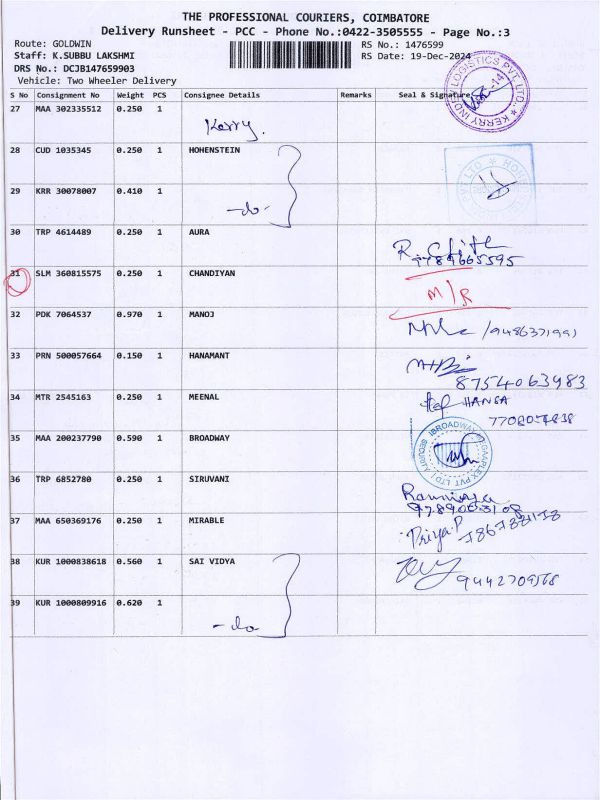 THE PROFESSIONAL COURIERS, COIMBATORE
Delivery Runsheet - PCC - Phone No.:0422-3505555 - Page No.:3
Route: GOLDWIN
RS No.: 1476599
Staff: K.SUBBU LAKSHMI
RS Date: 19-Dec-2024
DRS No.: DCJB147659903
Vehicle: Two Wheeler Delivery
S No Consignment No Weight PCS Consignee Details Remarks Seal & Signature
27 MAA 302335512 0.250 1
Kerry.
28 CUD 1035345 0.250 1 HOHENSTEIN
29 KRR 30078007 0.410 1
-do-
30 TRP 4614489 0.250 1 AURA
31 SLM 360815575 0.250 1 CHANDIYAN
M/R
32 PDK 7064537 0.970 1 MANOJ
33 PRN 500057664 0.150 1 HANAMANT
8754063983
34 MTR 2545163 0.250 1 MEENAL
HANSA
35 MAA 200237790 0.590 1 BROADWAY
36 TRP 6852780 0.250 1 SIRUVANI
37 MAA 650369176 0.250 1 MIRABLE
Priya.P
38 KUR 1000838618 0.560 1 SAI VIDYA
39 KUR 1000809916 0.620 1
-do